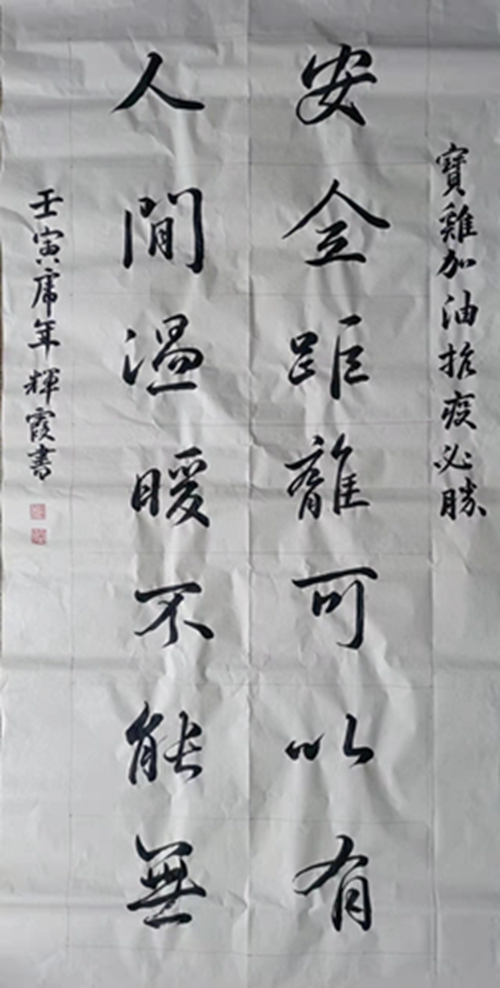 寶雞加油抗疫必勝
安全距離可以有
人間溫暖不能無
壬寅虎年輝霞書